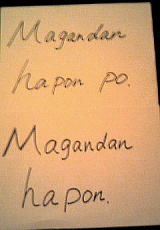 Magandan
hapon po.
Magandan
hapon.